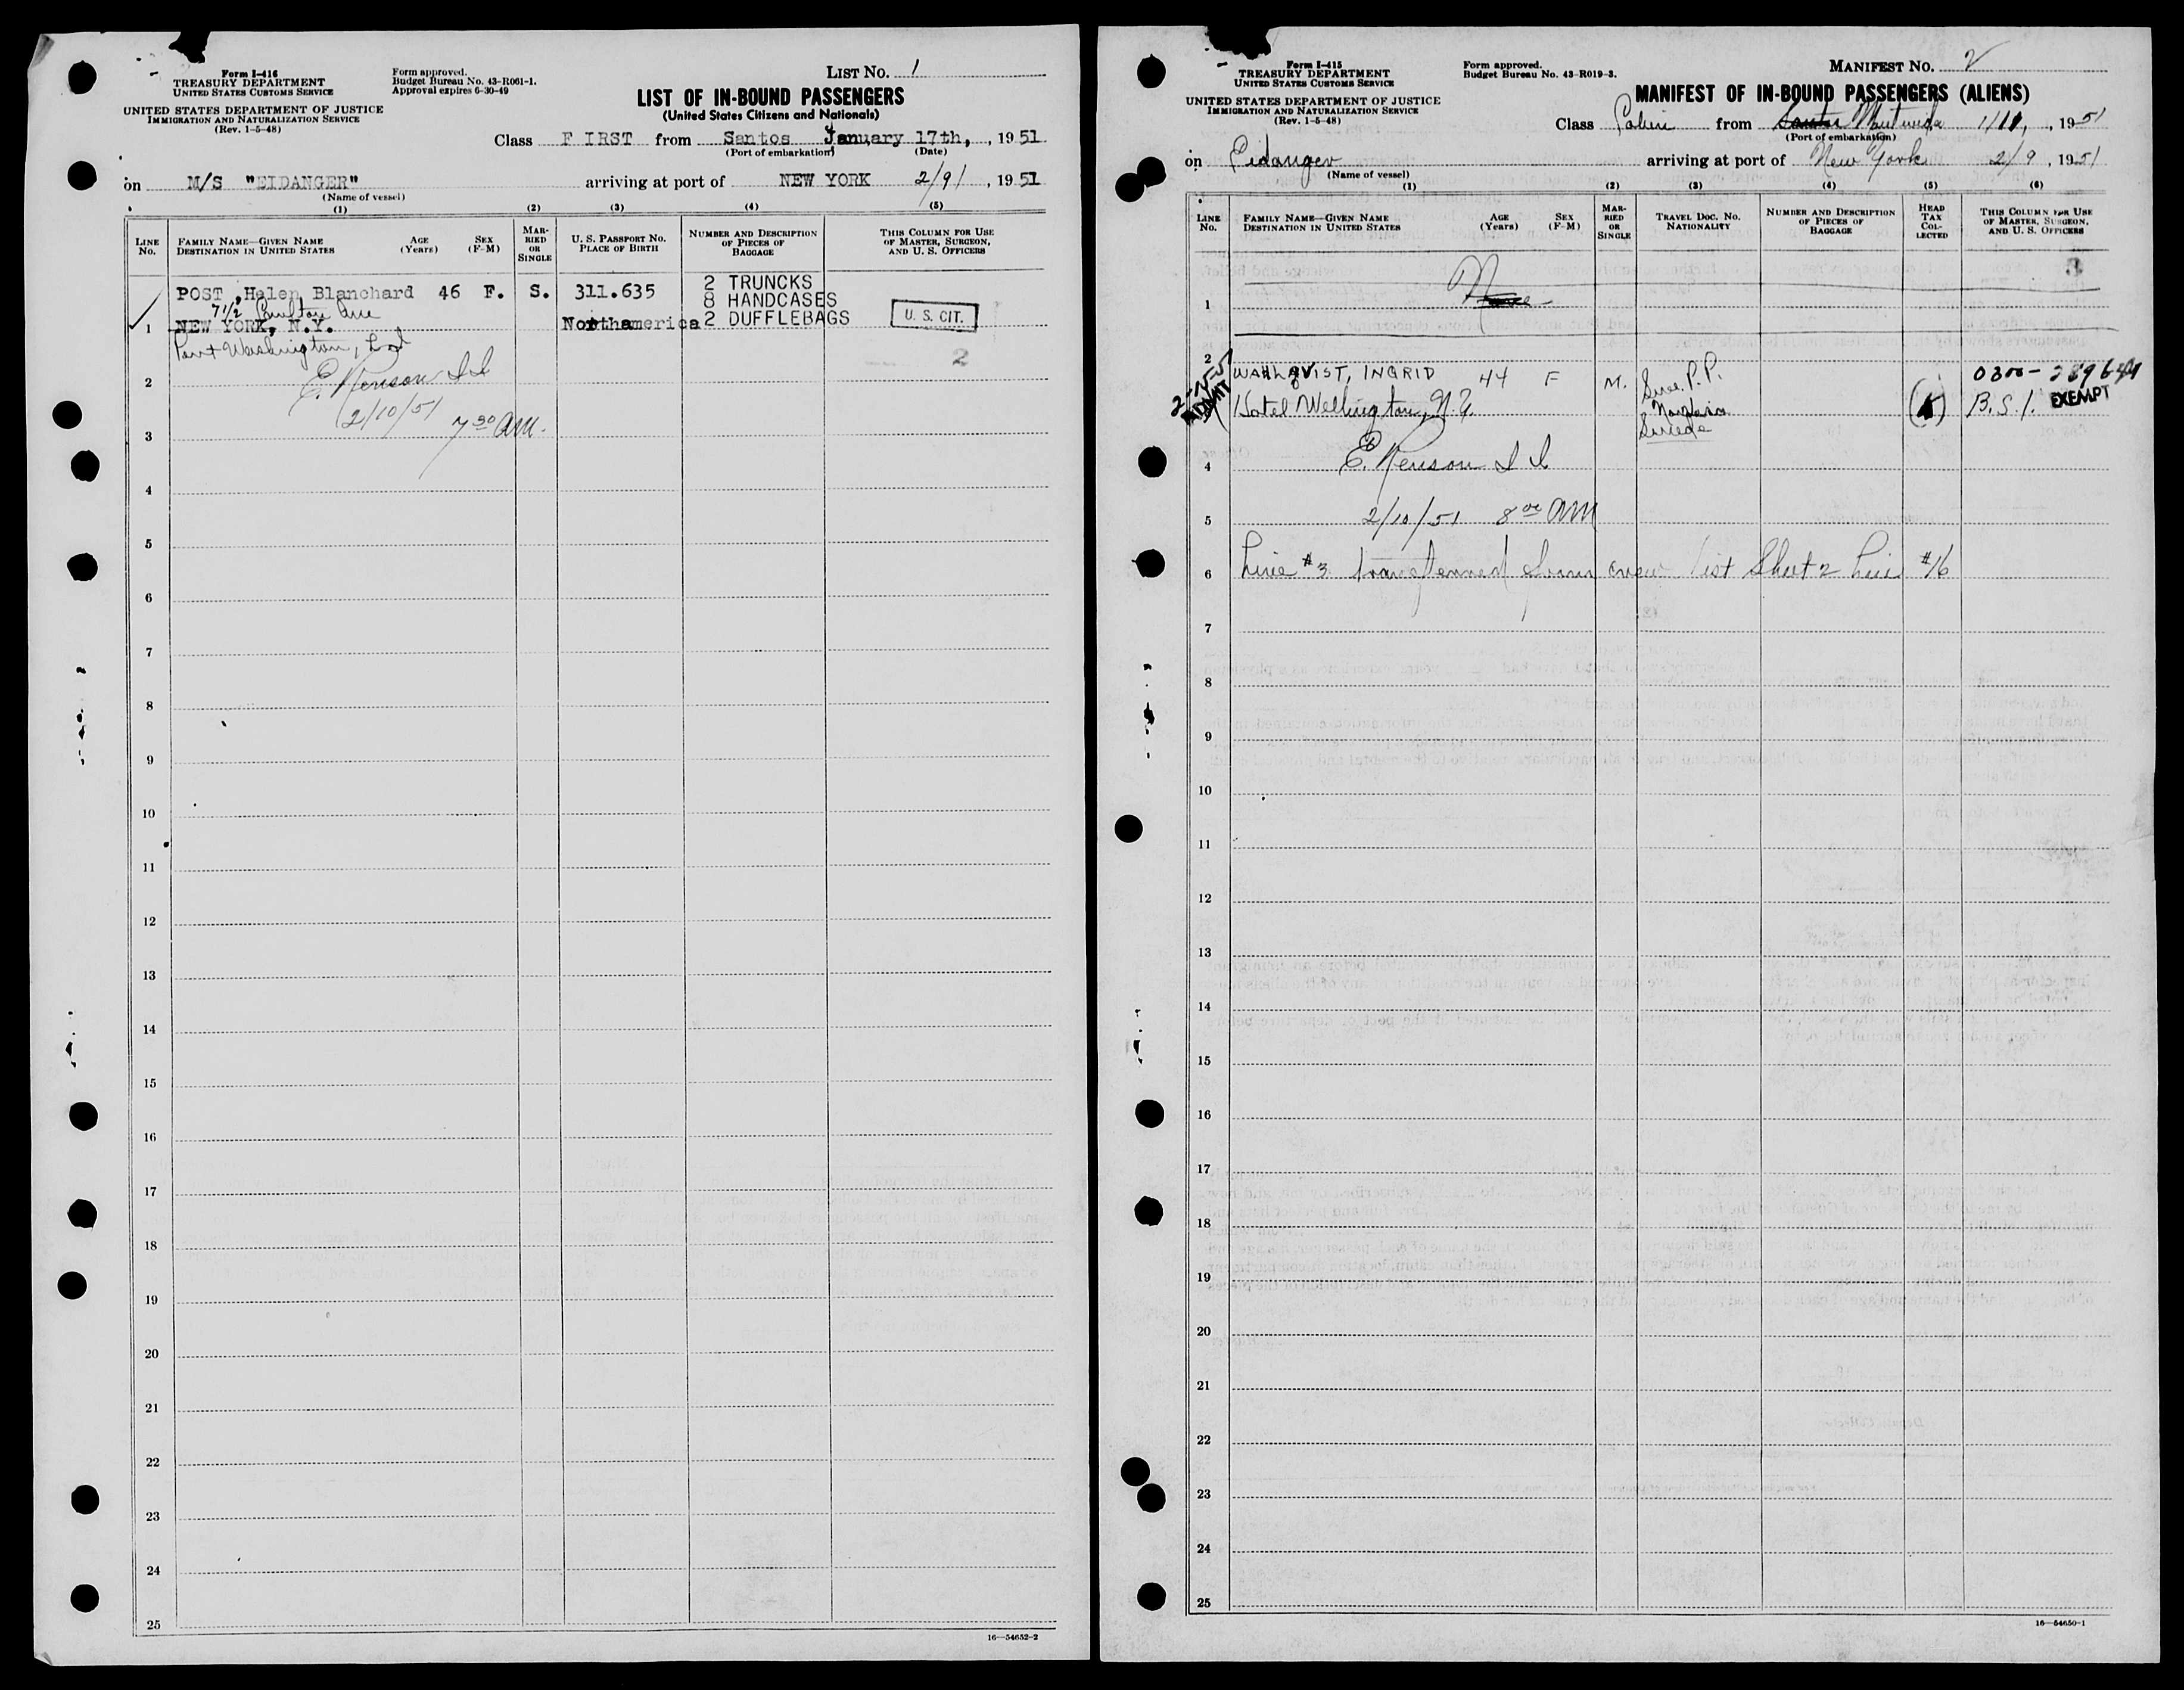 Form I-416
TREASURY DEPARTMENT
UNITED STATES CUSTOMS SERVICE
UNITED STATES DEPARTMENT OF JUSTICE
IMMIGRATION AND NATURALIZATION SERVICE
(Rev. 1-5-48)
Form approved.
Budget Bureau No. 43-R061-1.
Approval expires 6-30-49
LIST NO. 1
LIST OF IN-BOUND PASSENGERS
(United States Citizens and Nationals)
Class FIRST from Santos January 17th, , 19 51
(Port of embarkation) (Date)
on M/S "EIDANGER" arriving at port of NEW YORK 2/9/ , 19 51
(Name of vessel)
(1) (2) (3) (4) (5)
LINE NO.
FAMILY NAME—GIVEN NAME
DESTINATION IN UNITED STATES
AGE (Years)
SEX (F-M)
MARRIED OR SINGLE
U. S. PASSPORT NO.
PLACE OF BIRTH
NUMBER AND DESCRIPTION OF PIECES OF BAGGAGE
THIS COLUMN FOR USE OF MASTER, SURGEON, AND U. S. OFFICERS
POST, Helen Blanchard 46 F. S. 311.635 2 TRUNCKS
8 HANDCASES
7 1/2 Ave
1 NEW YORK, N.Y. Northamerica 2 DUFFLEBAGS U. S. CIT.
Port Washington,
2
2 E. Renson I I
2/10/51 7 30 AM.
3
4
5
6
7
8
9
10
11
12
13
14
15
16
17
18
19
20
21
22
23
24
25
16—54652-2
Form I-415
TREASURY DEPARTMENT
UNITED STATES CUSTOMS SERVICE
UNITED STATES DEPARTMENT OF JUSTICE
IMMIGRATION AND NATURALIZATION SERVICE
(Rev. 1-5-48)
Form approved.
Budget Bureau No. 43-R019-3.
MANIFEST NO. 2
MANIFEST OF IN-BOUND PASSENGERS (ALIENS)
Class from Santos 1/11, , 19 51
(Port of embarkation)
on Eidanger arriving at port of New York 2/9 , 19 51
(Name of vessel)
(1) (2) (3) (4) (5) (6)
LINE NO.
FAMILY NAME—GIVEN NAME
DESTINATION IN UNITED STATES
AGE (Years)
SEX (F-M)
MARRIED OR SINGLE
TRAVEL DOC. NO.
NATIONALITY
NUMBER AND DESCRIPTION OF PIECES OF BAGGAGE
HEAD TAX COLLECTED
THIS COLUMN FOR USE OF MASTER, SURGEON, AND U. S. OFFICERS
3
1 None
2
WAHLQVIST, INGRID 44 F M. Swe. P.P. 0300-
ADMIT Hotel Wellington, N.Y. B.S.I. EXEMPT
Swede
4 E. Renson I I
5 2/10/51 8 00 AM
6 Line #3 transferred from crew list Sheet 2 Line #16
7
8
9
10
11
12
13
14
15
16
17
18
19
20
21
22
23
24
25
16—54650-1